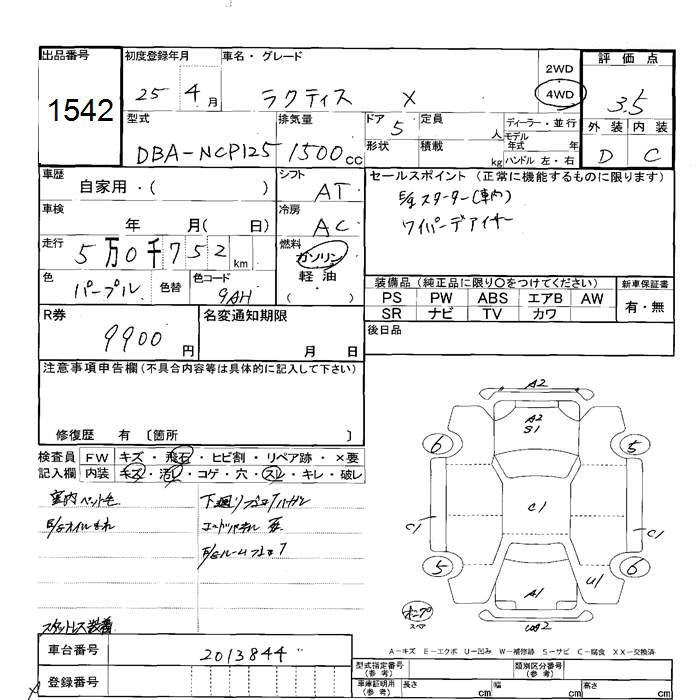 出品番号
1542
初度登録年月
25 4月
車名・グレード
ラクティス X
2WD
4WD
評価点
3.5
外装 内装
D C
型式
DBA-NCP125
排気量
1500cc
ドア
5
定員
人
形状
積載
kg
ディーラー・並行
モデル
年式 年
ハンドル 左・右
車歴
自家用・( )
シフト
AT
車検
年 月( 日)
冷房
AC
走行
5万0千752km
燃料
ガソリン
軽油
( )
色
パープル
色替
色コード
9AH
セールスポイント(正常に機能するものに限ります)
E/gスターター(車内)
ワイパーデアイサー
装備品(純正品に限り○をつけてください)
PS PW ABS エアB AW
SR ナビ TV カワ
新車保証書
有・無
後日品
R券
9900円
名変通知期限
月 日
注意事項申告欄(不具合内容等は具体的に記入して下さい)
修復歴 有 〔箇所 〕
検査員
記入欄
FW キズ・飛石・ヒビ割・リペア跡・×要
内装 キズ・汚レ・コゲ・穴・スレ・キレ・破レ
室内ペット毛
E/gオイルもれ
下廻り
E/gルーム
スタットレス装着
A2
A2
S1
6
5
C1
C1
C1
5
6
U1
A1
テンプ
スペア
A2
A−キズ E−エクボ U−凹み W−補修跡 S−サビ C−腐食 XX−交換済
車台番号
2013844
登録番号
型式指定番号
(参考)
類別区分番号
(参考)
車庫証明用
(参考)
長さ cm
幅 cm
高さ cm